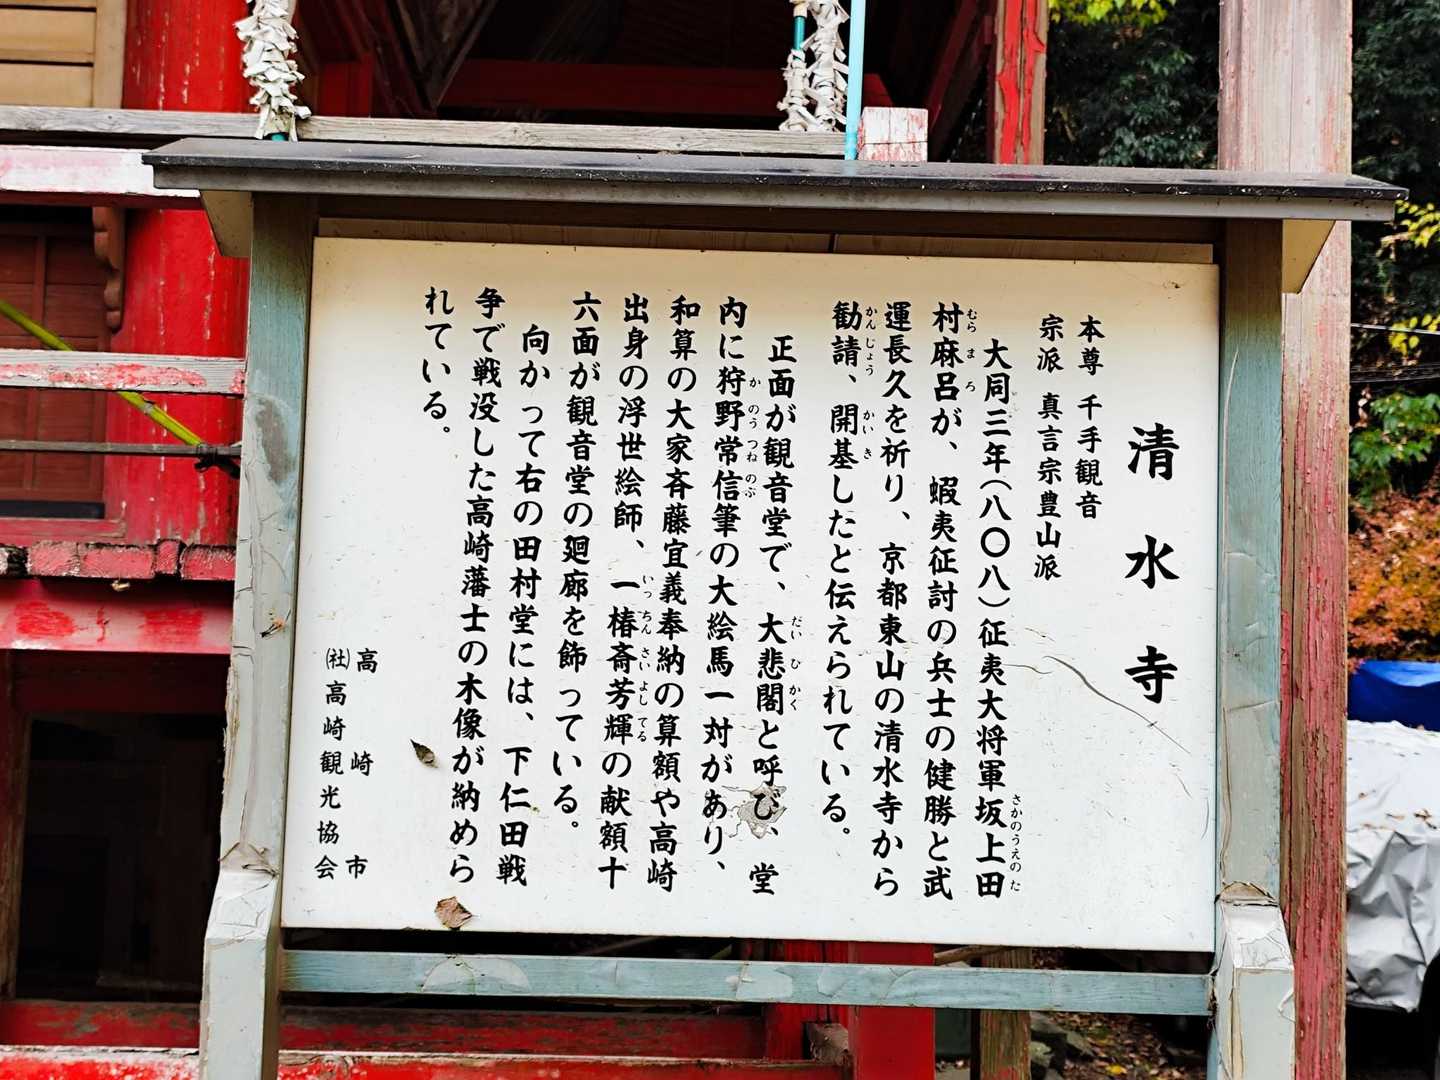 清水寺
本尊 千手観音
宗派 真言宗豊山派
大同三年(八〇八)征夷大将軍坂上田
さかのうえのた
村麻呂が、蝦夷征討の兵士の健勝と武
むらまろ
運長久を祈り、京都東山の清水寺から
勧請、開基したと伝えられている。
かんじょう かいき
正面が観音堂で、大悲閣と呼び、堂
だいひかく
内に狩野常信筆の大絵馬一対があり、
かのうつねのぶ
和算の大家斉藤宜義奉納の算額や高崎
出身の浮世絵師、一椿斎芳輝の献額十
いっちんさいよしてる
六面が観音堂の廻廊を飾っている。
向かって右の田村堂には、下仁田戦
争で戦没した高崎藩士の木像が納めら
れている。
高崎市
㈳高崎観光協会